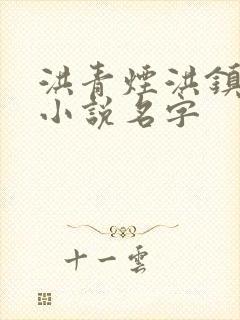 洪青煙洪鎮
小說名字
十一雲